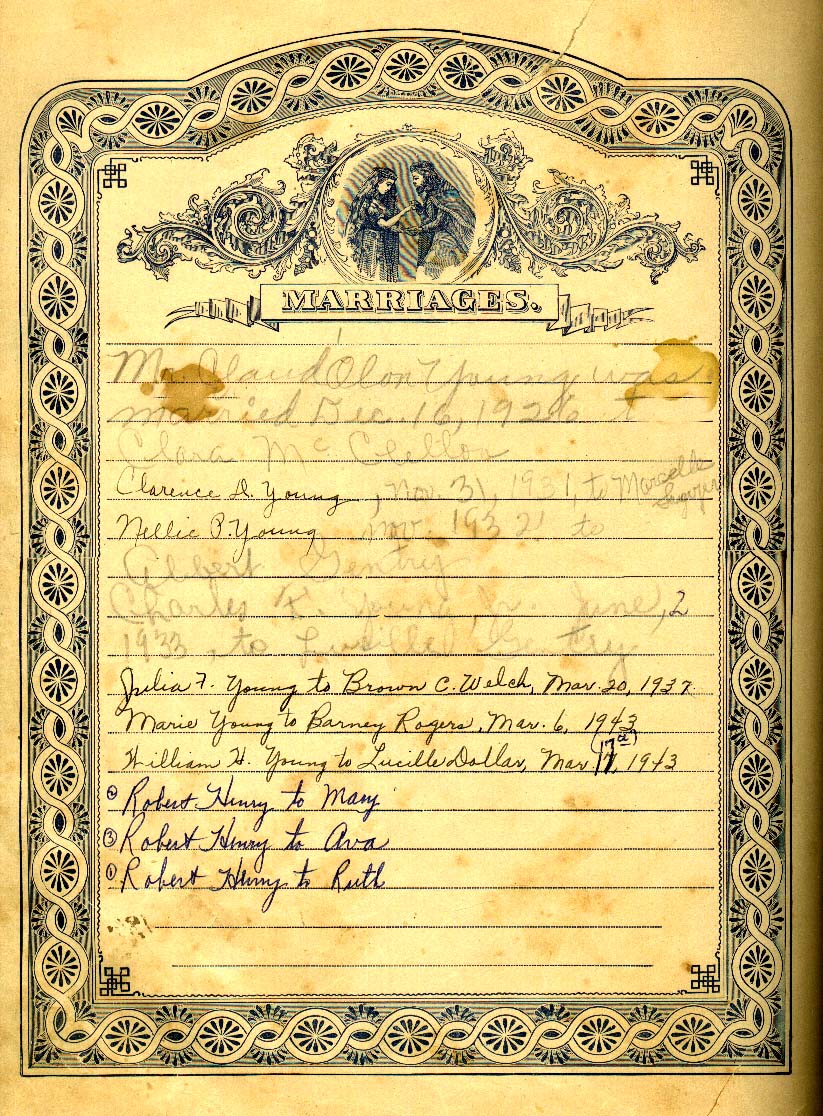 MARRIAGES.
Mr. Claud Olon Young was
married Dec. 16, 1926 t
Clara Mc Clellon
Clarence D. Young, Nov. 31, 1931, to Marcelle
Nellie P. Young Nov. 1932 to
Albert Gentry
Charles K. Young Jr. June, 2
1933, to Lucille Gentry
Julia F. Young to Brown C. Welch, Mar. 20, 1937.
Marie Young to Barney Rogers, Mar. 6, 1943
William H. Young to Lucille Dollar, Mar 17, 1943
② Robert Henry to Mary
③ Robert Henry to Ava
① Robert Henry to Ruth